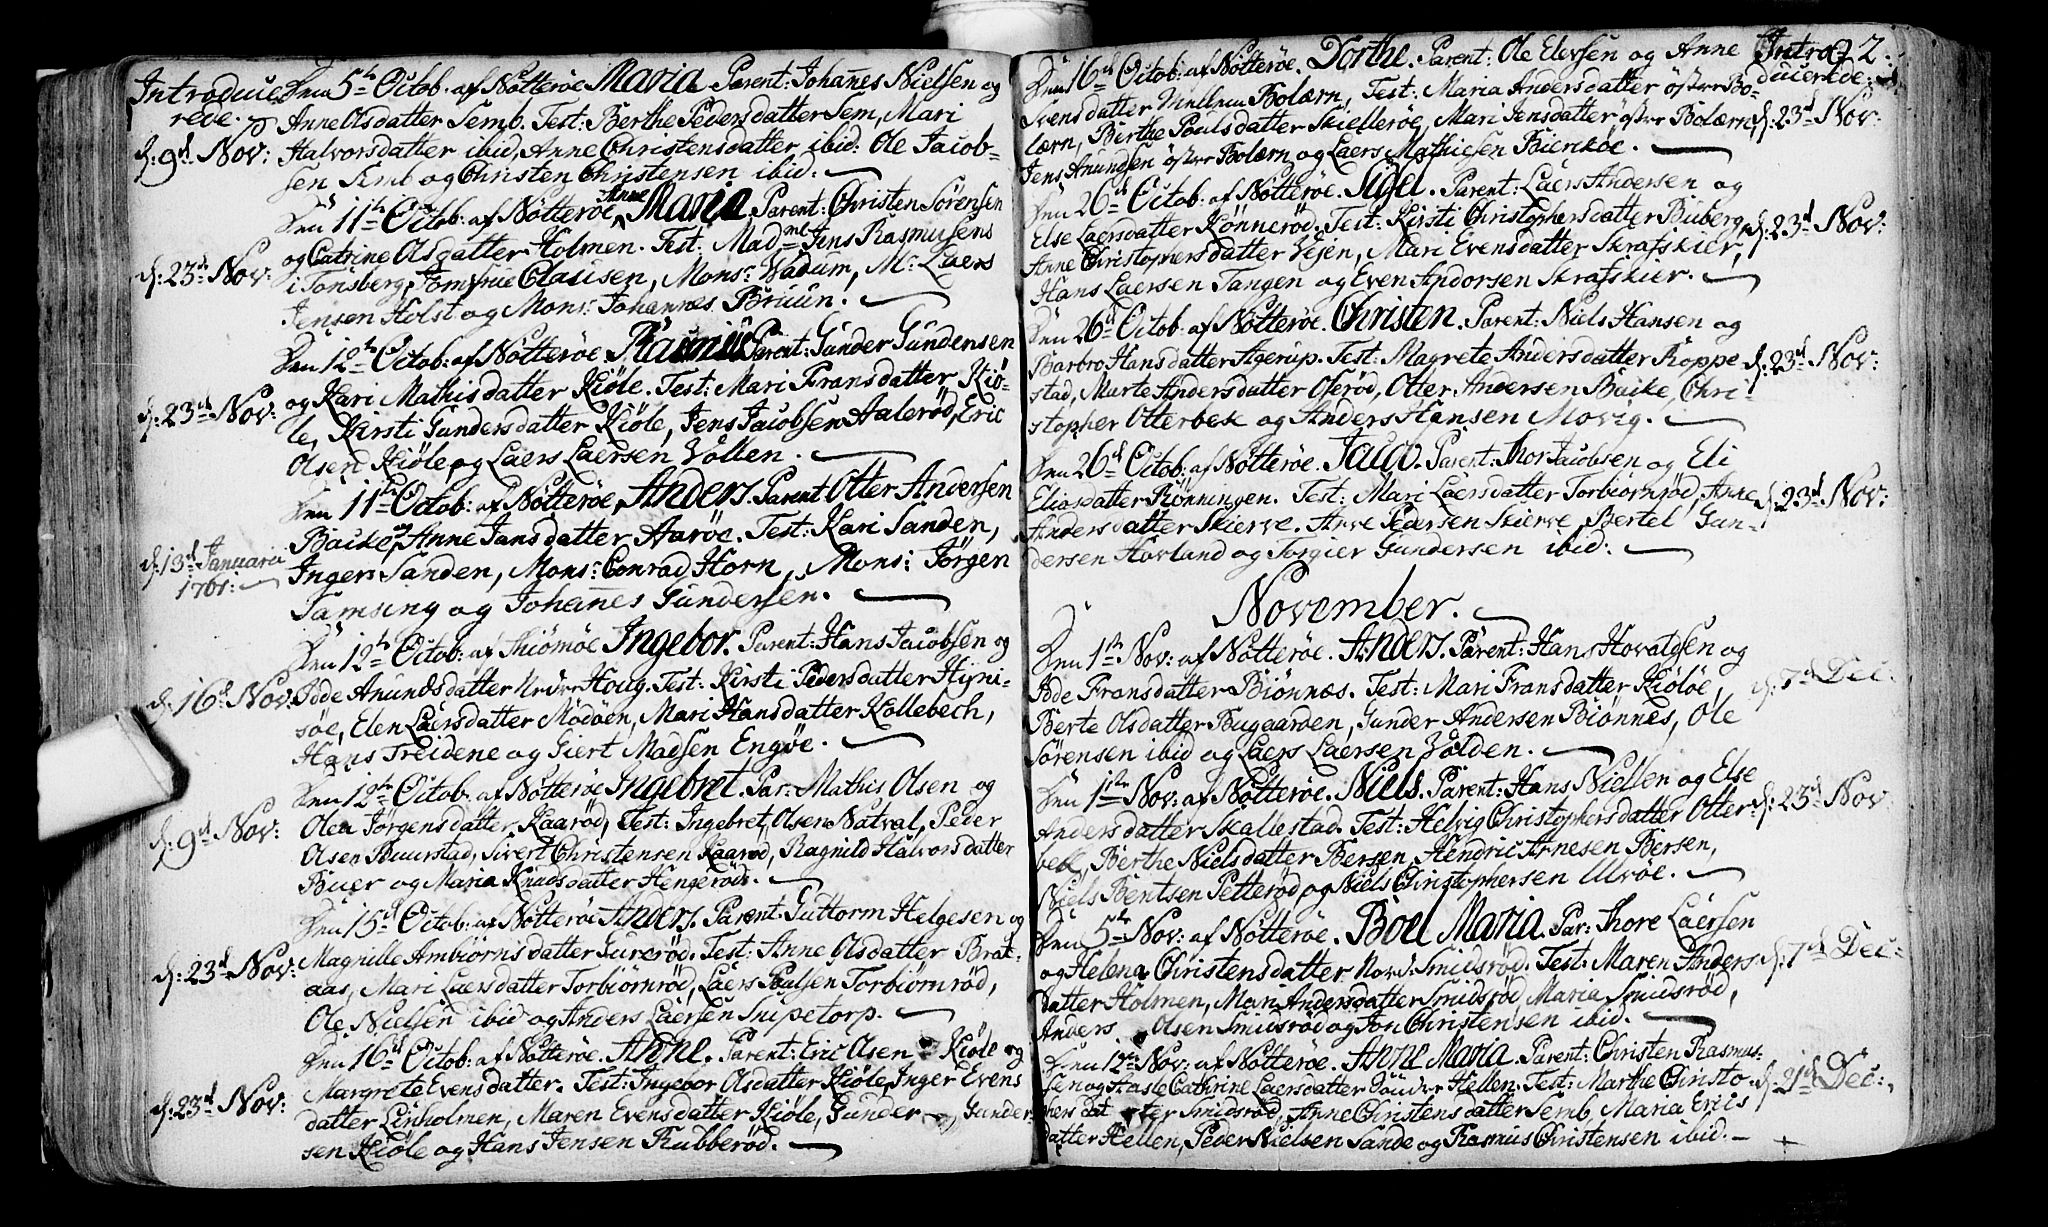 Introduce-
rede.
Den 5te Octob. af Nötteröe Maria. Parent: Johannes Nielsen og
Anne Olsdatter Semb. Test: Berthe Pedersdatter Sem, Mari
d: 9d Nov: Halvorsdatter ibid, Anne Christensdatter ibid: Ole Jacob-
sen Semb og Christen Christensen ibid.
Den 11te Octob: af Nötteröe Anne Maria. Parent: Christen Sörensen
og Catrine Olsdatter Holmen. Test: Madme Jens Rasmusens
d: 23d Nov: i Tönsberg, Jomfrue Clausen, Monsr: Wadum, Mr. Laers
Jensen Holst og Mons: Johannes Bruun.
Den 12te Octob: af Nötteröe Rasmus. Parent: Gunder Gundersen
og Kari Mathisdatter Kiöle. Test: Mari Fransdatter Kiö-
d: 23d Nov: le, Kirsti Gundersdatter Kiöle, Jens Jacobsen Aaleröd, Eric
Olsen Kiöle og Laers Laersen Volten.
Den 11te Octob: af Nötteröe, Anders. Parent Otter Andersen
Backe og Anne Jansdatter Aaröe. Test: Kari Sanden,
d: 13d Januarii 1761: Inger Sanden, Mons: Conrad Horn, Mons: Jörgen
Samsing og Johannes Gundersen.
Den 12te Octob: af Thiömöe Ingebor. Parent: Hans Jacobsen og
d: 16d Nov: Jöde Anundsdatter Neder Houg. Test: Kirsti Pedersdatter Hyni-
söe, Elen Laersdatter Mödöen, Mari Hansdatter Kollebech,
Hans Treidene og Siert Madsen Engöe.
Den 12te Octob: af Nötteröe Ingebret. Par: Mathis Olsen og
d: 9d Nov: Olea Jörgensdatter Kaaröd, Test: Ingebret Olsen Natval, Peder
Olsen Buerstad, Sivert Christensen Kaaröd, Ragnild Halvorsdatter
Buer og Maria Knudsdatter Hengeröd.
Den 15d Octob: af Nötteröe Anders. Parent: Guttorm Helgesen og
d: 23d Nov: Magnille Ambiörnsdatter Gureröd. Test: Anne Olsdatter Brat-
aas, Mari Laersdatter Torbiörnröd, Laers Paulsen Torbiörnröd,
Ole Nielsen ibid og Anders Laersen Snipetorp.
Den 16d Octob: af Nötteröe. Anne. Parent: Eric Olsen Kiöle og
Margrete Evensdatter. Test: Ingebor Olsdatter Kiöle, Inger Evens
d: 23d Nov: datter Linholmen, Maren Evensdatter Kiöle, Gunder Gunder-
sen Kiöle og Hans Jensen Rubberöd.
Den 16d Octob: af Nötteröe. Dorthe. Parent: Ole Elevsen og Anne Intro- 2
Svensdatter Mellem Bolærn, Test: Maria Andersdatter öster Bo- ducerede:
lærn, Berthe Poulsdatter Skielleröe, Mari Jensdatter öster Bolærn, d: 23d Nov:
Jens Anundsen öster Bolærn og Laers Mathiesen Bierköe.
Den 26d Octob: af Nötteröe. Sigel. Parent: Laers Andersen og
Else Laersdatter Könneröd. Test: Kirsti Christophersdatter Buberg, d: 23d Nov:
Anne Christophersdatter Vejen, Mari Evensdatter Skrafskier,
Hans Laersen Tangen og Even Andorsen Skrafskier.
Den 26d Octob: af Nötteröe. Christen. Parent: Niels Hansen og
Barbro Hansdatter Agerup. Test: Magrete Andersdatter Roppe d: 23d Nov:
stad, Marte Andersdatter Oseröd, Otter Andersen Backe, Chri-
stopher Otterbek og Anders Hansen Movig.
Den 26d Octob: af Nötteröe. Jaco. Parent: Thor Jacobsen og Eli
Eliasdatter Rönningen. Test: Mari Laersdatter Torbiörnröd, Anne d: 23d Nov:
Andersdatter Skierve. Arve Pedersen Skierve, Bertel Gun-
dersen Hovland og Torgier Gundersen ibid:
November.
Den 1te Nov: af Nötteröe. Anders. Parent: Hans Hovaldsen og
Jöde Fransdatter Biönnæs. Test: Mari Fransdatter Kiölöe, d: 7d Dec:
Berte Olsdatter Bugaarden, Gunder Andersen Biönnes, Ole
Sörensen ibid og Laers Laersen Volden.
Den 1te Nov: af Nötteröe. Niels. Parent: Hans Nielsen og Else
Andersdatter Skallestad. Test: Helvig Christophersdatter Otter- d: 23d Nov:
bek, Berthe Nielsdatter Bersen, Hendric Arnesen Bersen,
Niels Bentsen Petteröd og Niels Christophersen Ulvöe.
Den 5te Nov: af Nötteröe. Boel Maria. Par: Thore Laersen
og Helena Christensdatter Nord: Smidsröd. Test: Maren Anders d: 7d Dec:
datter Holmen, Mari Andersdatter Smidsröd Maria Smidsröd,
Anders Olsen Smidsröd og Jon Christensen ibid.
Den 12te Nov: af Nötteröe. Anne Maria. Parent: Christen Rasmus-
sen og Catherine Laersdatter Hellen. Test: Marthe Christo d: 21d Dec:
phersdatter Smidsröd, Anne Christensdatter Semb, Maria Erics
datter Hellen, Peder Nielsen Sande og Rasmus Christensen ibid.